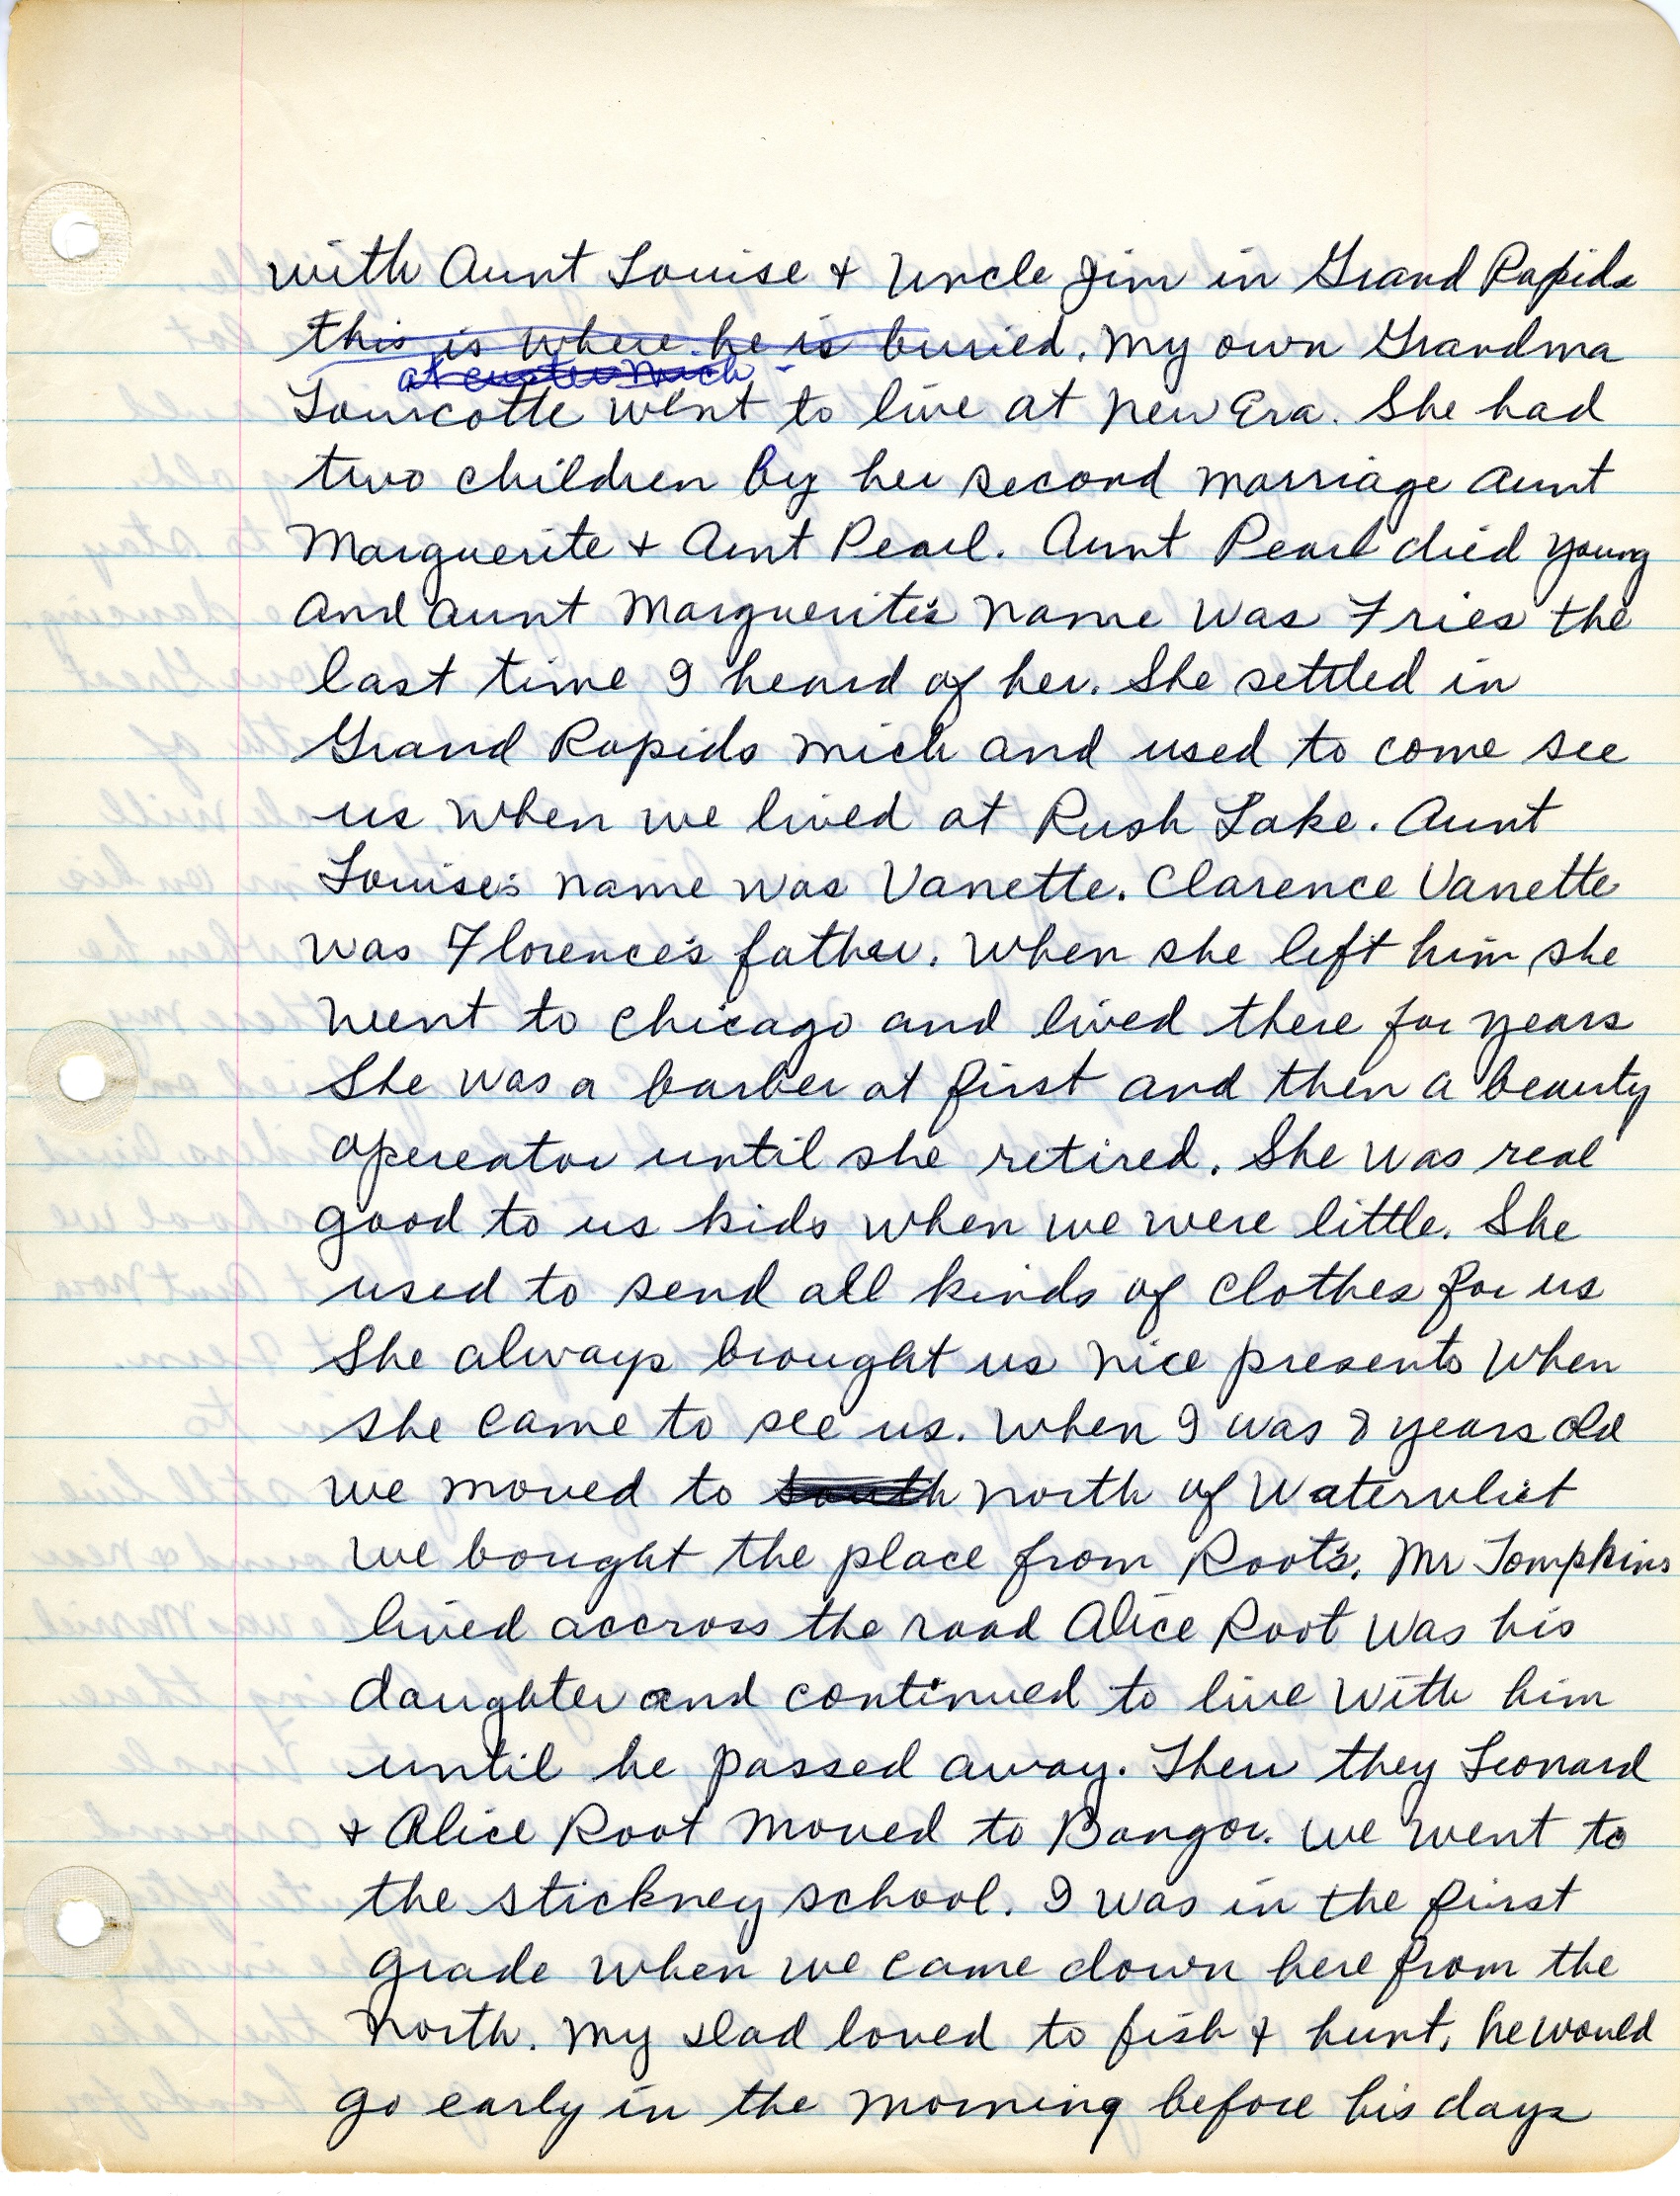 with Aunt Louise & Uncle Jim in Grand Rapids
this is where he is buried. My own Grandma
at custer Mich
Tourcotte went to live at New Era. She had
two children by her second marriage Aunt
Marguerite & Aunt Pearl. Aunt Pearl died young
and aunt Marguerite's name was Fries the
last time I heard of her. She settled in
Grand Rapids Mich and used to come see
us when we lived at Rush Lake. Aunt
Louise's name was Vanette. Clarence Vanette
was Florence's father. When she left him she
went to Chicago and lived there for years
She was a barber at first and then a beauty
opereator until she retired. She was real
good to us kids when we were little. She
used to send all kinds of clothes for us
She always brought us nice presents when
she came to see us. When I was 8 years old
we moved to south north of Watervliet
we bought the place from Root's. Mr Tompkins
lived accross the road Alice Root was his
daughter and continued to live with him
until he passed away. Then they Leonard
& Alice Root moved to Bangor. We went to
the Stickney school. I was in the first
grade when we came down here from the
north. My dad loved to fish & hunt, he would
go early in the morning before his days